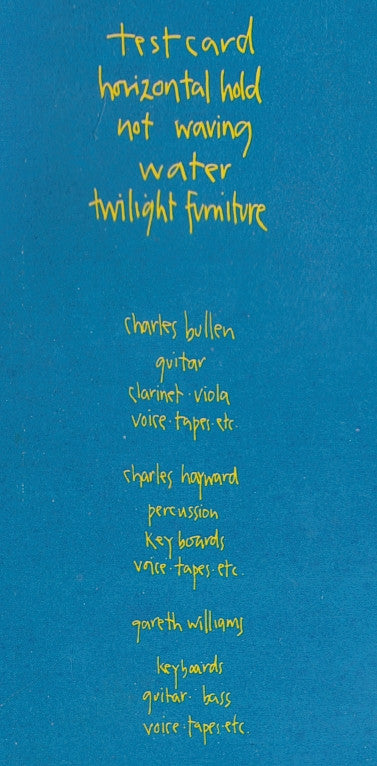 testcard
horizontal hold
not waving
water
twilight furniture
charles bullen
guitar
clarinet · viola
voice · tapes · etc.
charles hayward
percussion
keyboards
voice · tapes · etc.
gareth williams
keyboards
guitar · bass
voice · tapes · etc.